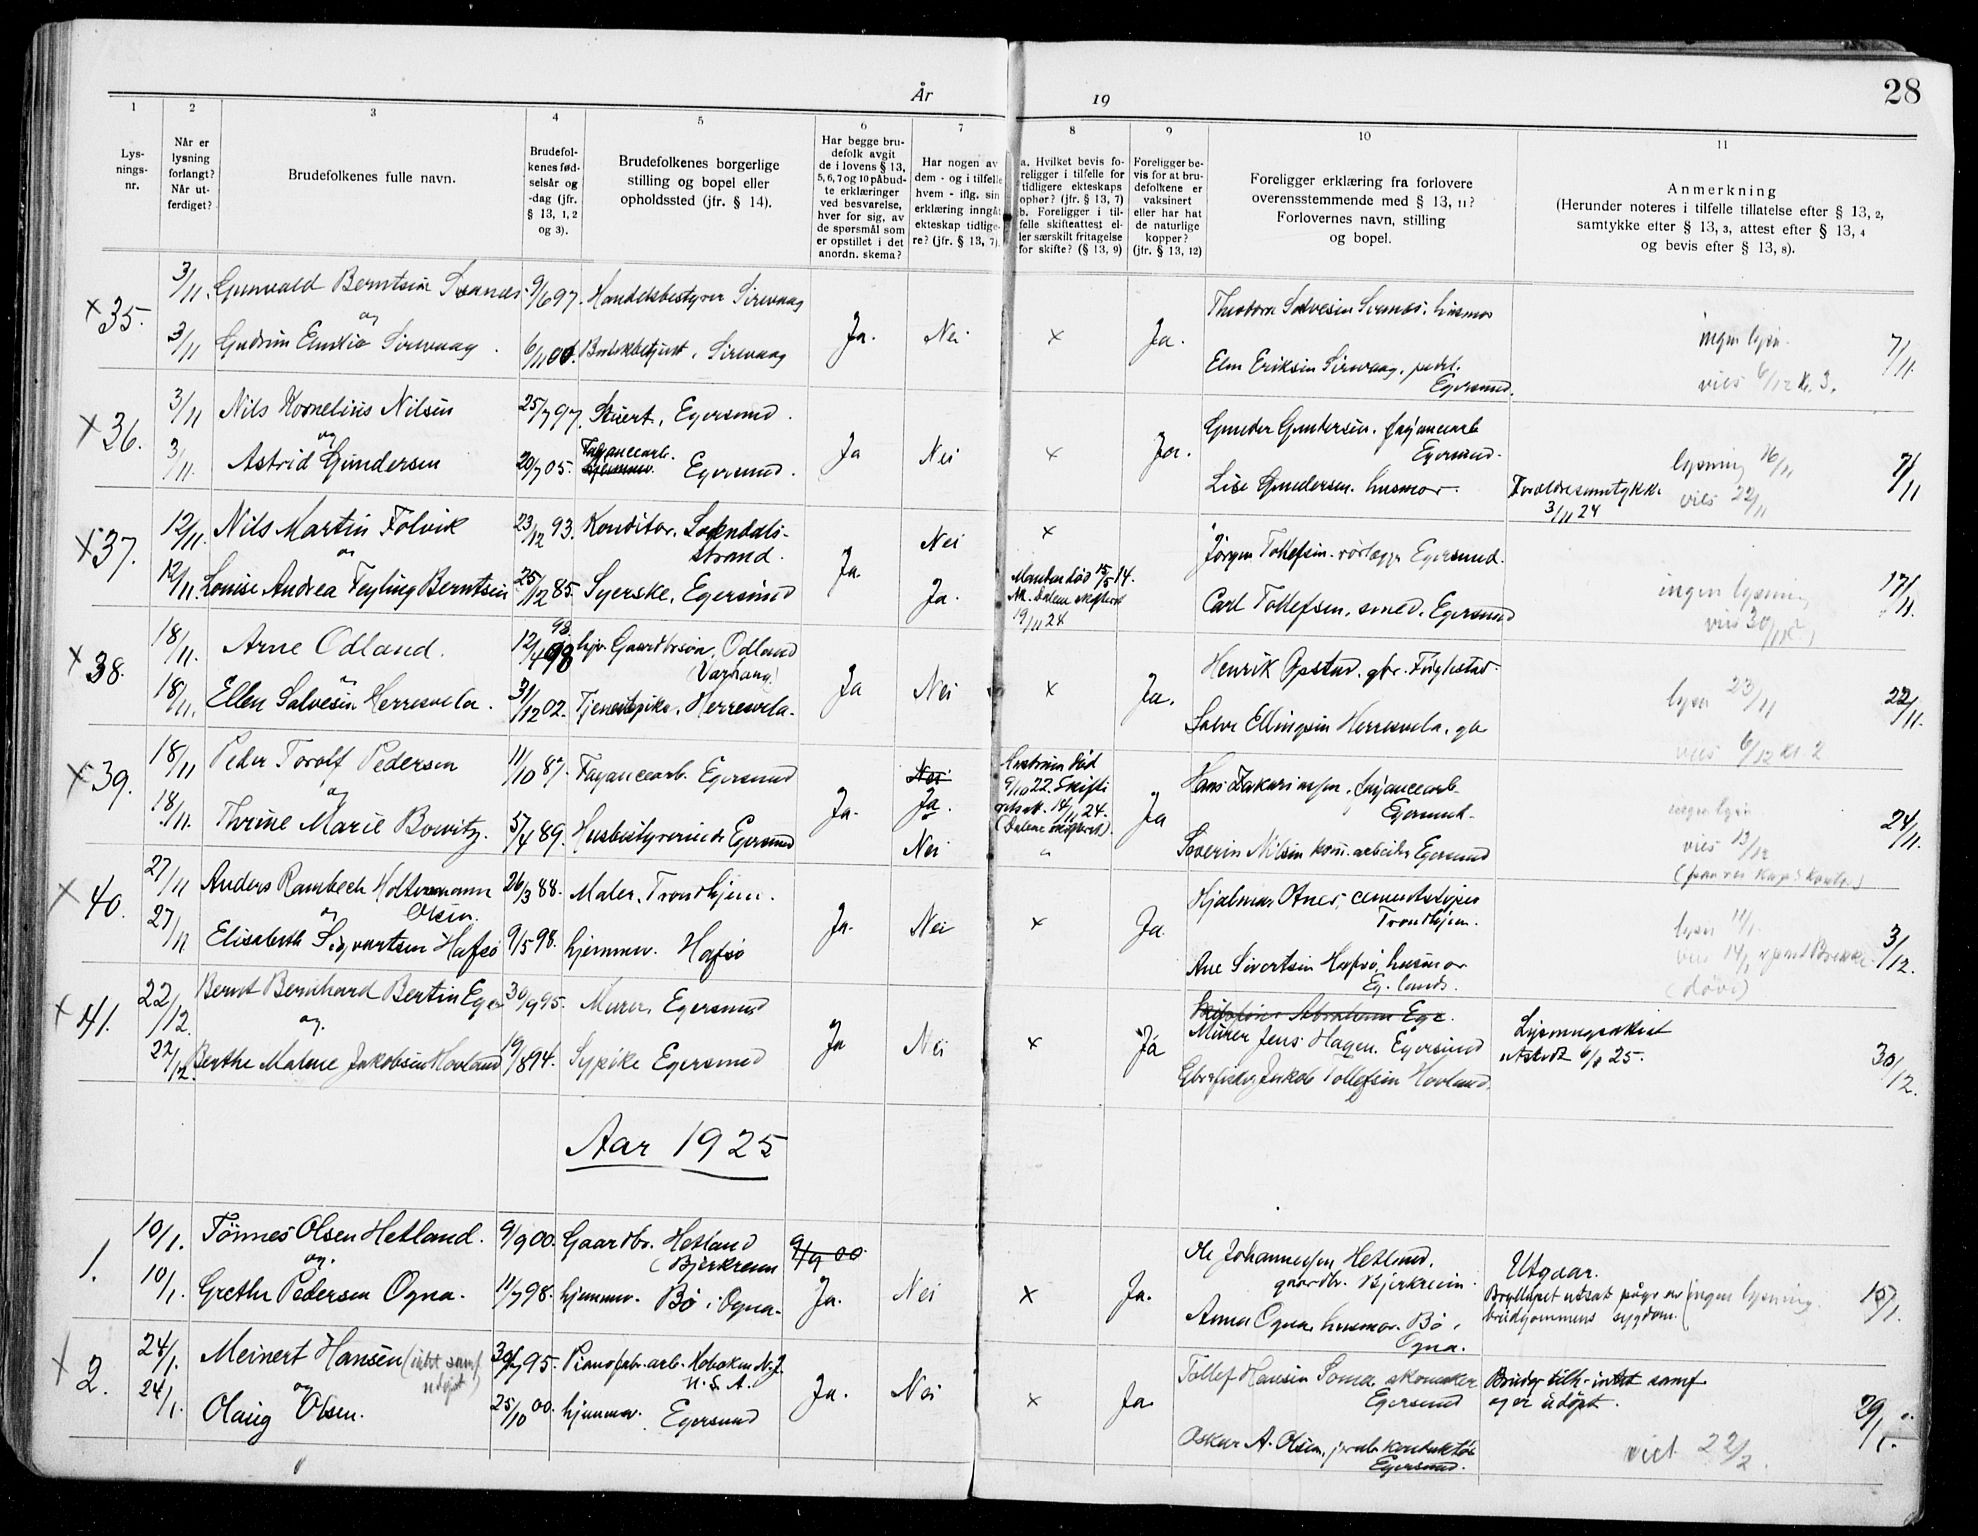 År 19
28
1 2 3 4 5 6 7 8 9 10 11
Lys-
nings-
nr.
Når er
lysning
forlangt?
Når ut-
ferdiget?
Brudefolkenes fulle navn.
Brudefol-
kenes fød-
selsår og
-dag (jfr.
§ 13, 1, 2
og 3).
Brudefolkenes borgerlige
stilling og bopel eller
opholdssted (jfr. § 14).
Har begge bru-
defolk avgit
de i lovens § 13,
5, 6, 7 og 10 påbud-
te erklæringer
ved besvarelse,
hver for sig, av
de spørsmål som
er opstillet i det
anordn. skema?
Har nogen av
dem - og i tilfelle
hvem - iflg. sin
erklæring inngåt
ekteskap tidlige-
re? (jfr. § 13, 7).
a. Hvilket bevis fo-
religger i tilfelle for
tidligere ekteskaps
ophør? (jfr. § 13, 7)
b. Foreligger i til-
felle skifteattest el-
ler særskilt fritagelse
for skifte? (§ 13, 9)
Foreligger be-
vis for at bru-
defolkene er
vaksinert
eller har hat
de naturlige
kopper?
(jfr. § 13, 12)
Foreligger erklæring fra forlovere
overensstemmende med § 13, 11?
Forlovernes navn, stilling
og bopel.
Anmerkning
(Herunder noteres i tilfelle tillatelse efter § 13, 2,
samtykke efter § 13, 3, attest efter § 13, 4
og bevis efter § 13, 8).
x 35. 3/11. Gunvald Berntsen Svanes 9/6 97. Handelsbestyrer Sirevaag
og
3/11 Gudrun Sirevaag. 6/11 00. Sirevaag Ja. Nei x Ja.
Theodora Salvesen Svanes, husmor
Elen Eriksen Sirevaag,
Egersund.
ingen lysn.
vies 6/12 kl. 3.
7/11.
x 36. 3/11 Nils Kornelius Nilsen 25/7 97. Stuert, Egersund.
og
3/11. Astrid Gundersen 20/7 05. Fayancearb. Egersund. Ja Nei x Ja.
Gunder Gundersen, fayancearb
Egersund.
Lise Gundersen. husmor.
Forældresamtykke
3/11 24
lysning 16/11
vies 22/11
7/11
x 37. 12/11. Nils Martin Folvik 23/12 93. Konditor, Sokndals-
strand. Nei x
og
12/11. Louise Andrea Feyling Berntsen 25/12 85. Syerske, Egersund Ja. Ja.
Manden død 15/5 14.
Dalene skifteret
19/11 24
Jörgen Tollefsen. rörlegger Egersund.
Carl Tollefsen, smed, Egersund
ingen lysning
vies 30/11
17/11.
x 38. 18/11. Arne Odland. 12/4 98 Gaardbrsøn, Odland
(Varhaug)
og
18/11. Ellen Salvesen Herresvela. 31/12 02. Tjenestepike, Herresvela. Ja Nei x Ja.
Henrik Opstad. gbr. Fuglestad
Salve Ellingsen Herresvela, gbr
lyses 23/11
vies 6/12 kl. 2
22/11.
x 39. 18/11 Peder Torolf Pedersen 11/10 87. Fayancearb. Egersund Nei
og
Ja.
18/11. Thrine Marie Bowitz. 5/4 89. Husbestyrerinde Egersund Ja. Nei
Hustruen död
9/10 22. Skifte
14/11 24.
(Dalene skifteret).
"
Ja
Hans Zakariassen, fayancearb
Egersund.
Severin Nilsen kom. arbeider Egersund
ingen lysn.
vies 13/12
24/11.
x 40. 27/11 Anders Rambech Holtermann 26/3 88. Maler, Trondhjem.
og Olsen.
27/11 Elisabeth Sigvartsen Hafsø 9/5 98. hjemmev. Hafsø Ja. Nei x Ja
Hjalmar Otnes, cementstöper
Trondhjem.
Ane Sivertsen Hafsö, husmor
Eg. lands.
lyses 11/1.
(døve)
3/12.
x 41. 22/12. Bernt Bernhard Bertin Ege 30/9 95. Murer, Egersund
og.
22/12. Berthe Malene Jakobsen Hovland 19/8 94. Sypike Egersund Ja Nei x Ja
Abraham Ege.
Murer Jens Hagen. Egersund
Jakob Tollefsen Hovland.
Lysningsattest
utstedt 6/1 25.
30/12.
Aar 1925
1. 10/1. Tönnes Olsen Hetland. 9/9 00. Gaardbr. Hetland 9/9 00
og. (Bjerkreim
10/1. Grethe Pedersen Ogna. 11/7 98. hjemmev. Bø i Ogna. Ja. Nei x Ja.
Johannessen Hetland.
gaardbr. Bjerkreim.
Anna Ogna, husmor. Bö i
Ogna.
Utgaar.
Bryllupet utsat pågr. av
brudgommens sygdom.
(ingen lysning.
15/1.
x 2. 24/1. Meinert Hansen (intet samf. 30/7 95. Pianofabr.arb. Hoboken N.J.
og udöpt) U.S.A.
24/1. Olaug Olsen. 25/10 00. hjemmev. Egersund Ja. Nei x Ja.
Tollef Hansen Soma, skomaker
Egersund
Oskar A. Olsen, konduktör
Egersund.
Brudg. tilh. intet samf.
og er udöpt.
viet 22/2.
29/1.